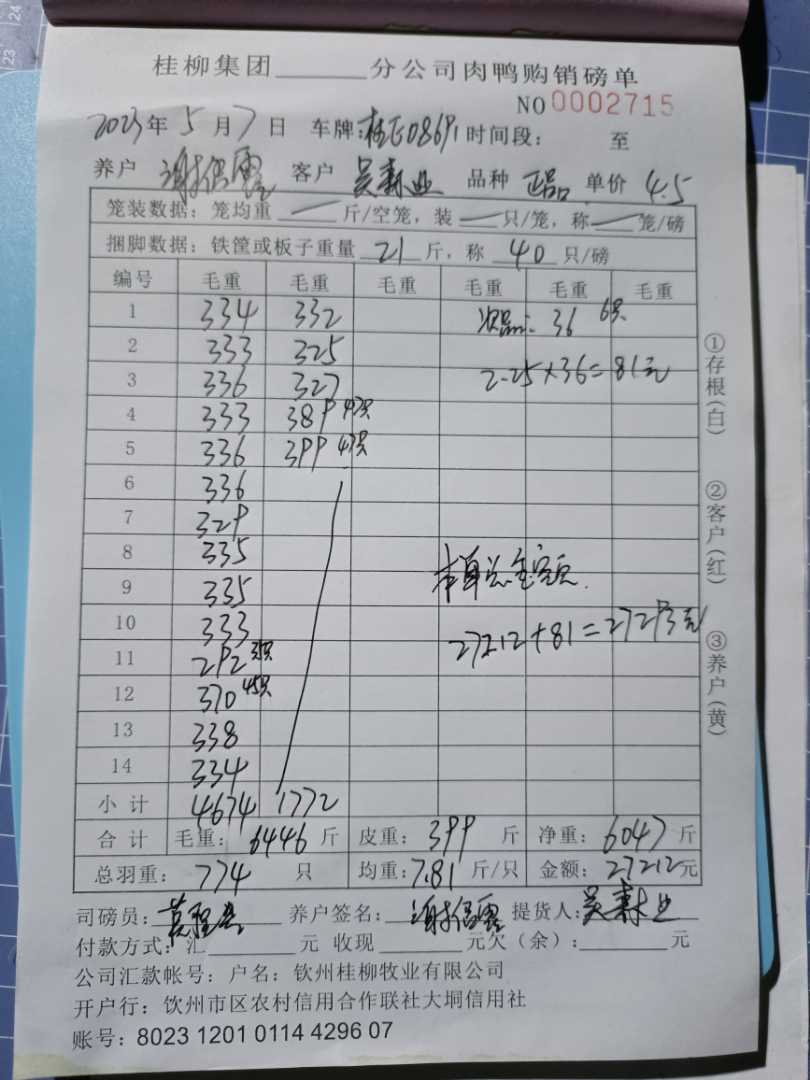 桂柳集团______分公司肉鸭购销磅单
NO 0002715
2023年 5 月 7 日 车牌: 时间段: 至
养户 客户 品种 正品 单价 4.5
笼装数据: 笼均重 — 斤/空笼, 装 — 只/笼, 称 — 笼/磅
捆脚数据: 铁筐或板子重量 21 斤, 称 40 只/磅
编号 毛重 毛重 毛重 毛重 毛重 毛重
1 334 332 次品: 36 6只
2 333 325
3 336 327 2.25×36=81元
4 333 389 47只
5 336 399 47只
6 336
7 329
8 335
9 335 本单总金额
10 333
11 292 27212+81=27293元
12 370 45只
13 338
14 334
小计 4674 1772
合计 毛重: 6446 斤 皮重: 399 斤 净重: 6047 斤
总羽重: 774 只 均重: 7.81 斤/只 金额: 27212元
司磅员: 养户签名: 提货人:
付款方式: 汇______元 收现______元欠(余):______元
公司汇款帐号: 户名: 钦州桂柳牧业有限公司
开户行: 钦州市区农村信用合作联社大垌信用社
账号: 8023 1201 0114 4296 07
①存根(白)
②客户(红)
③养户(黄)
23
24